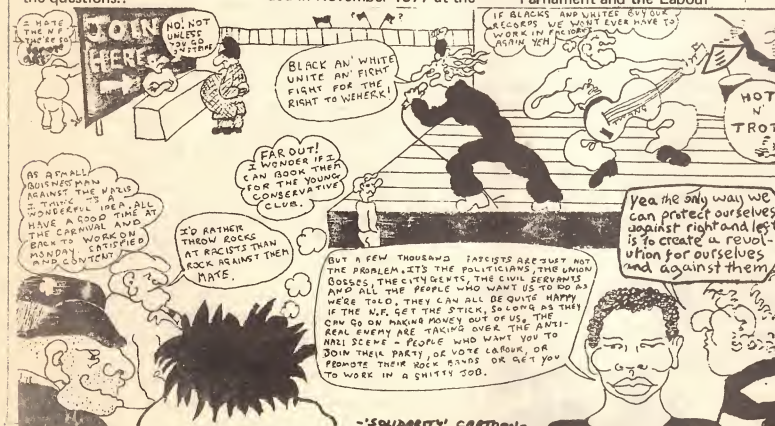 the questions!!
in November 1977 at the
Parliament and the Labour
I HATE
THE N.F.
THE'RE SO
JOIN
HERE
NO! NOT
UNLESS
YOU GO
?
BLACK AN' WHITE
UNITE AN' FIGHT
FIGHT FOR THE
RIGHT TO WEHERK!
IF BLACKS AND WHITES BUY OUR
RECORDS WE WONT EVER HAVE TO
WORK IN FACTORIES
AGAIN YEH
HOT
N'
TROT
AS A SMALL
BUISNESMAN
AGAINST THE NAZIS
I THINK IT'S A
WONDERFUL IDEA. ALL
HAVE A GOOD TIME AT
THE CARNIVAL AND
BACK TO WORK ON
MONDAY SATISFIED
AND CONTENT
FAR OUT!
I WONDER IF I
CAN BOOK THEM
FOR THE YOUNG
CONSERVATIVE
CLUB.
I'D RATHER
THROW ROCKS
AT RACISTS THAN
ROCK AGAINST THEM
MATE.
BUT A FEW THOUSAND FASCISTS ARE JUST NOT
THE PROBLEM. IT'S THE POLITICIANS, THE UNION
BOSSES, THE CITY GENTS, THE CIVIL SERVANTS
AND ALL THE PEOPLE WHO WANT US TO DO AS
WE'RE TOLD. THEY CAN ALL BE QUITE HAPPY
IF THE N.F. GET THE STICK, SO LONG AS THEY
CAN GO ON MAKING MONEY OUT OF US. THE
REAL ENEMY ARE TAKING OVER THE ANTI-
NAZI SCENE - PEOPLE WHO WANT YOU TO
JOIN THEIR PARTY, OR VOTE LABOUR, OR
PROMOTE THEIR ROCK BANDS OR GET YOU
TO WORK IN A SHITTY JOB.
Yea the only way we
can protect ourselves
against right and left
is to create a revol-
ution for ourselves
and against them
-'SOLIDARITY' CARTOON-